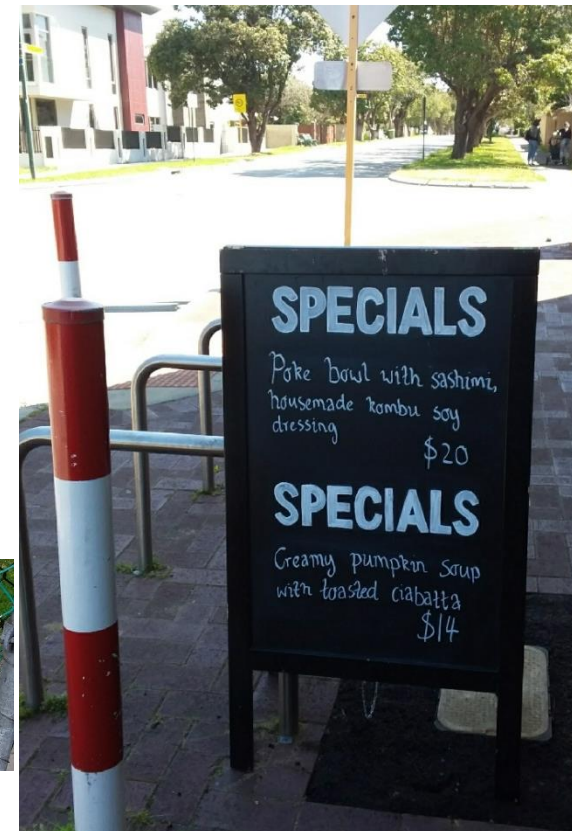 SPECIALS
Poke bowl with sashimi,
housemade kombu soy
dressing
$20
SPECIALS
Creamy pumpkin soup
with toasted ciabatta
$14